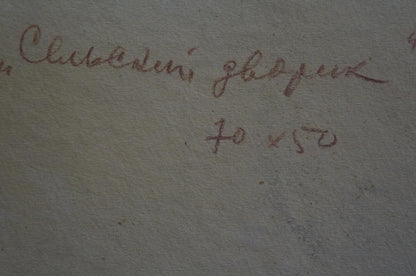 „Сельский дворик“
70 x 50